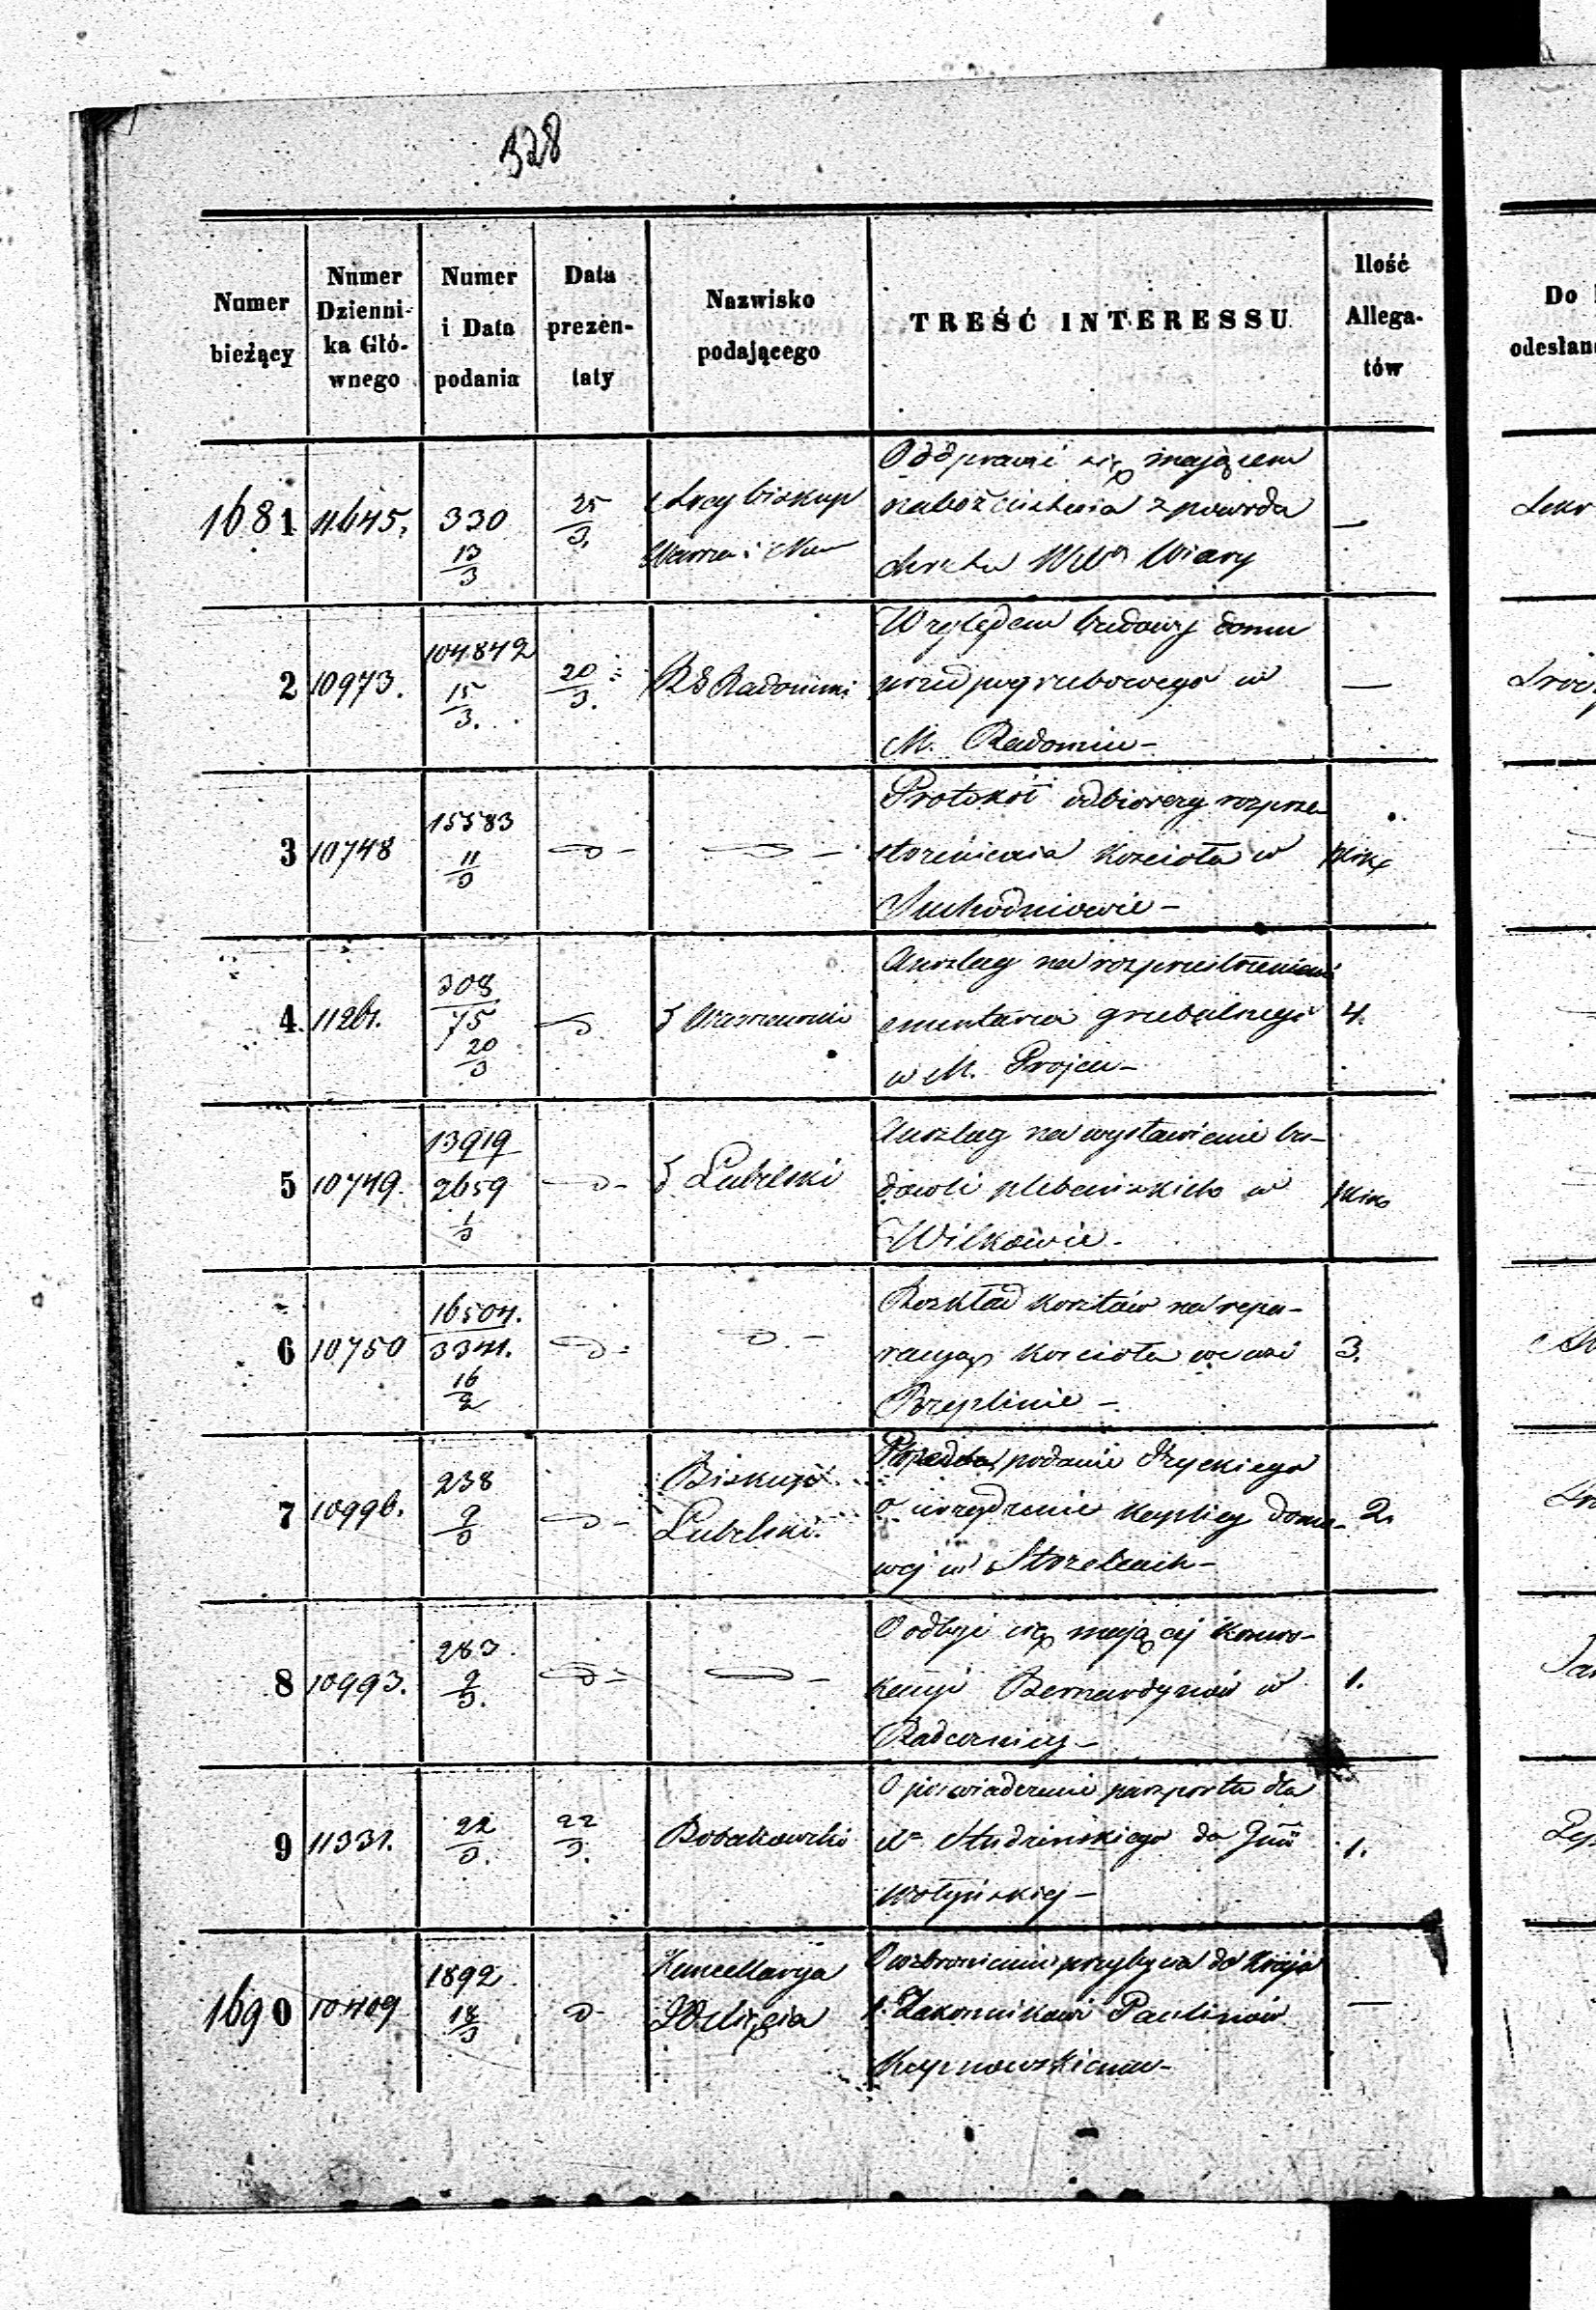 328
Numer bieżący
Numer Dzienni- ka Głó- wnego
Numer i Data podania
Data prezen- taty
Nazwisko podającego
TREŚĆ INTERESSU
Ilość Allega- tów
Do
odesłan
1681 11645. 330 13/3 25/3.
Arcybiskup
Oddprawić się mającem
nabożeństwie z powodu
chrztu Wiary
2 10973. 104842 15/3. 20/3. RG Radomski —
Względem budowy domu
przedpogrzebowego w
M. Radomiu –
3 10748 15583 11/3
Protokół odbiorczy rozprze
strzenienia Kościoła w
Suchedniowie –
4 11261. 308/75 20/3 Warszawski 4.
Anszlag na rozprzestrzenienie
cmentarza grzebalnego
w M.
5 10749. 13919/2659 1/3 Lubelski
Anszlag na wystawienie bu-
dowli plebańskich w
Wilkowie.
6 10750 16504./3341. 16/2 3.
Rozkład kosztów na repa-
racyą Kościoła we wsi
7 10996. 238 9/3 Biskup Lubelski. 2.
podanie
o urządzenie Kaplicy domo-
wej w Strzelcach –
8 10993. 283. 9/3. 1.
O odbyć się mającej Konwo-
kacyi Bernardynów w
Radecznicy –
9 11331. 22/3. 22/3. 1.
O poświadczenie paszportu dla
Studzinskiego do Gub
Wołyńskiej –
1690 10409 1892 18/3 Kancellarya Xcia —
O wzbronieniu przybycia do Kraju
Zakonnikowi Paulinów